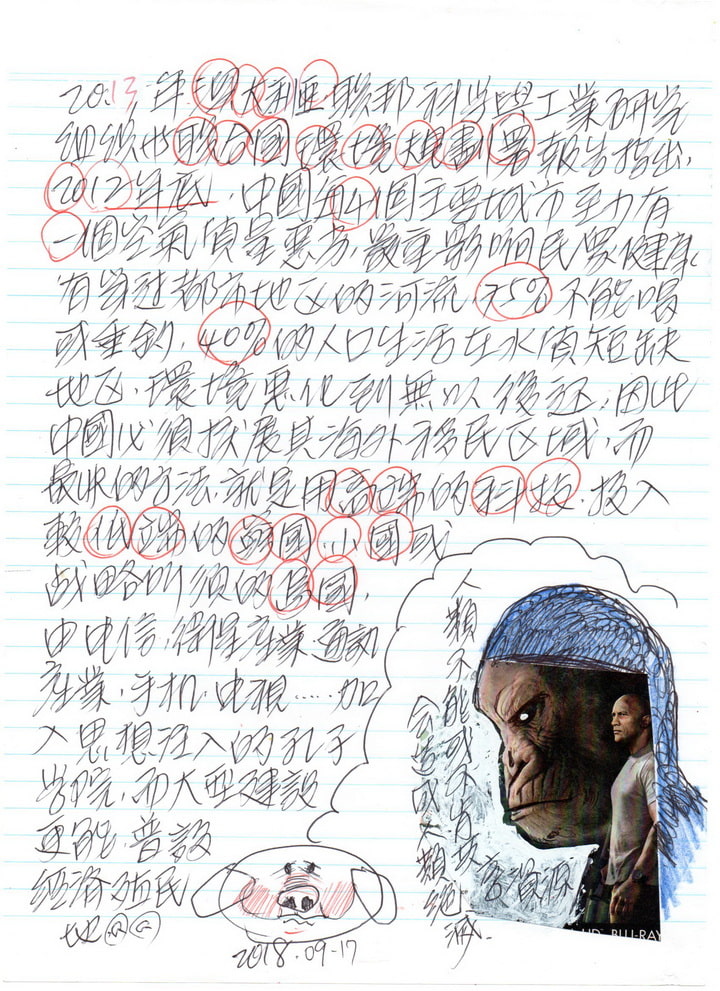 2013年澳大利亞聯邦科学與工業研究
組織與聯合國環境規劃署報告指出,
2012年底,中國每4個主要城市至少有
一個空氣質量惡劣,嚴重影响民眾健康,
有穿过都市地区的河流,75%不能喝
或垂釣,40%的人口生活在水質短缺
地区,環境惠化到無以後还,因此
中國必須擴展其海外移民区域,而
最UR的方法,就是用高端的科技,投入
較低端的弱國,小國或
战略所須的島國,
由电信,衛星產業,通訊
產業,手机,电視.....加
入思想注入的孔子
学院,而大型建設
更能,普設
經濟殖民
地
人類不能或不肯放
会造成人類絕滅.
害資源
2018.09-17
HD BLU-RAY